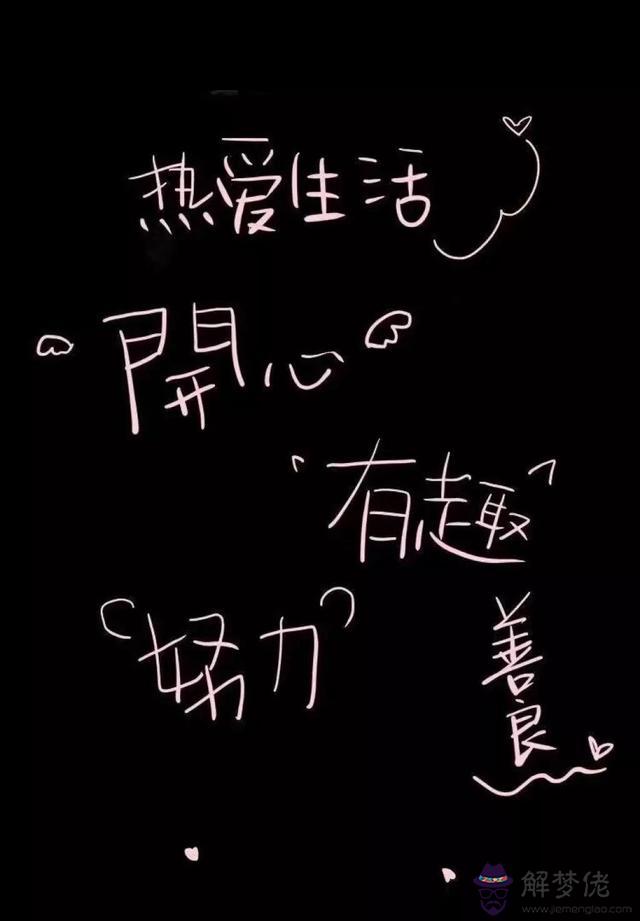 热爱生活
開心
有趣
努力
善良
解梦佬
www.jiemenglao.com